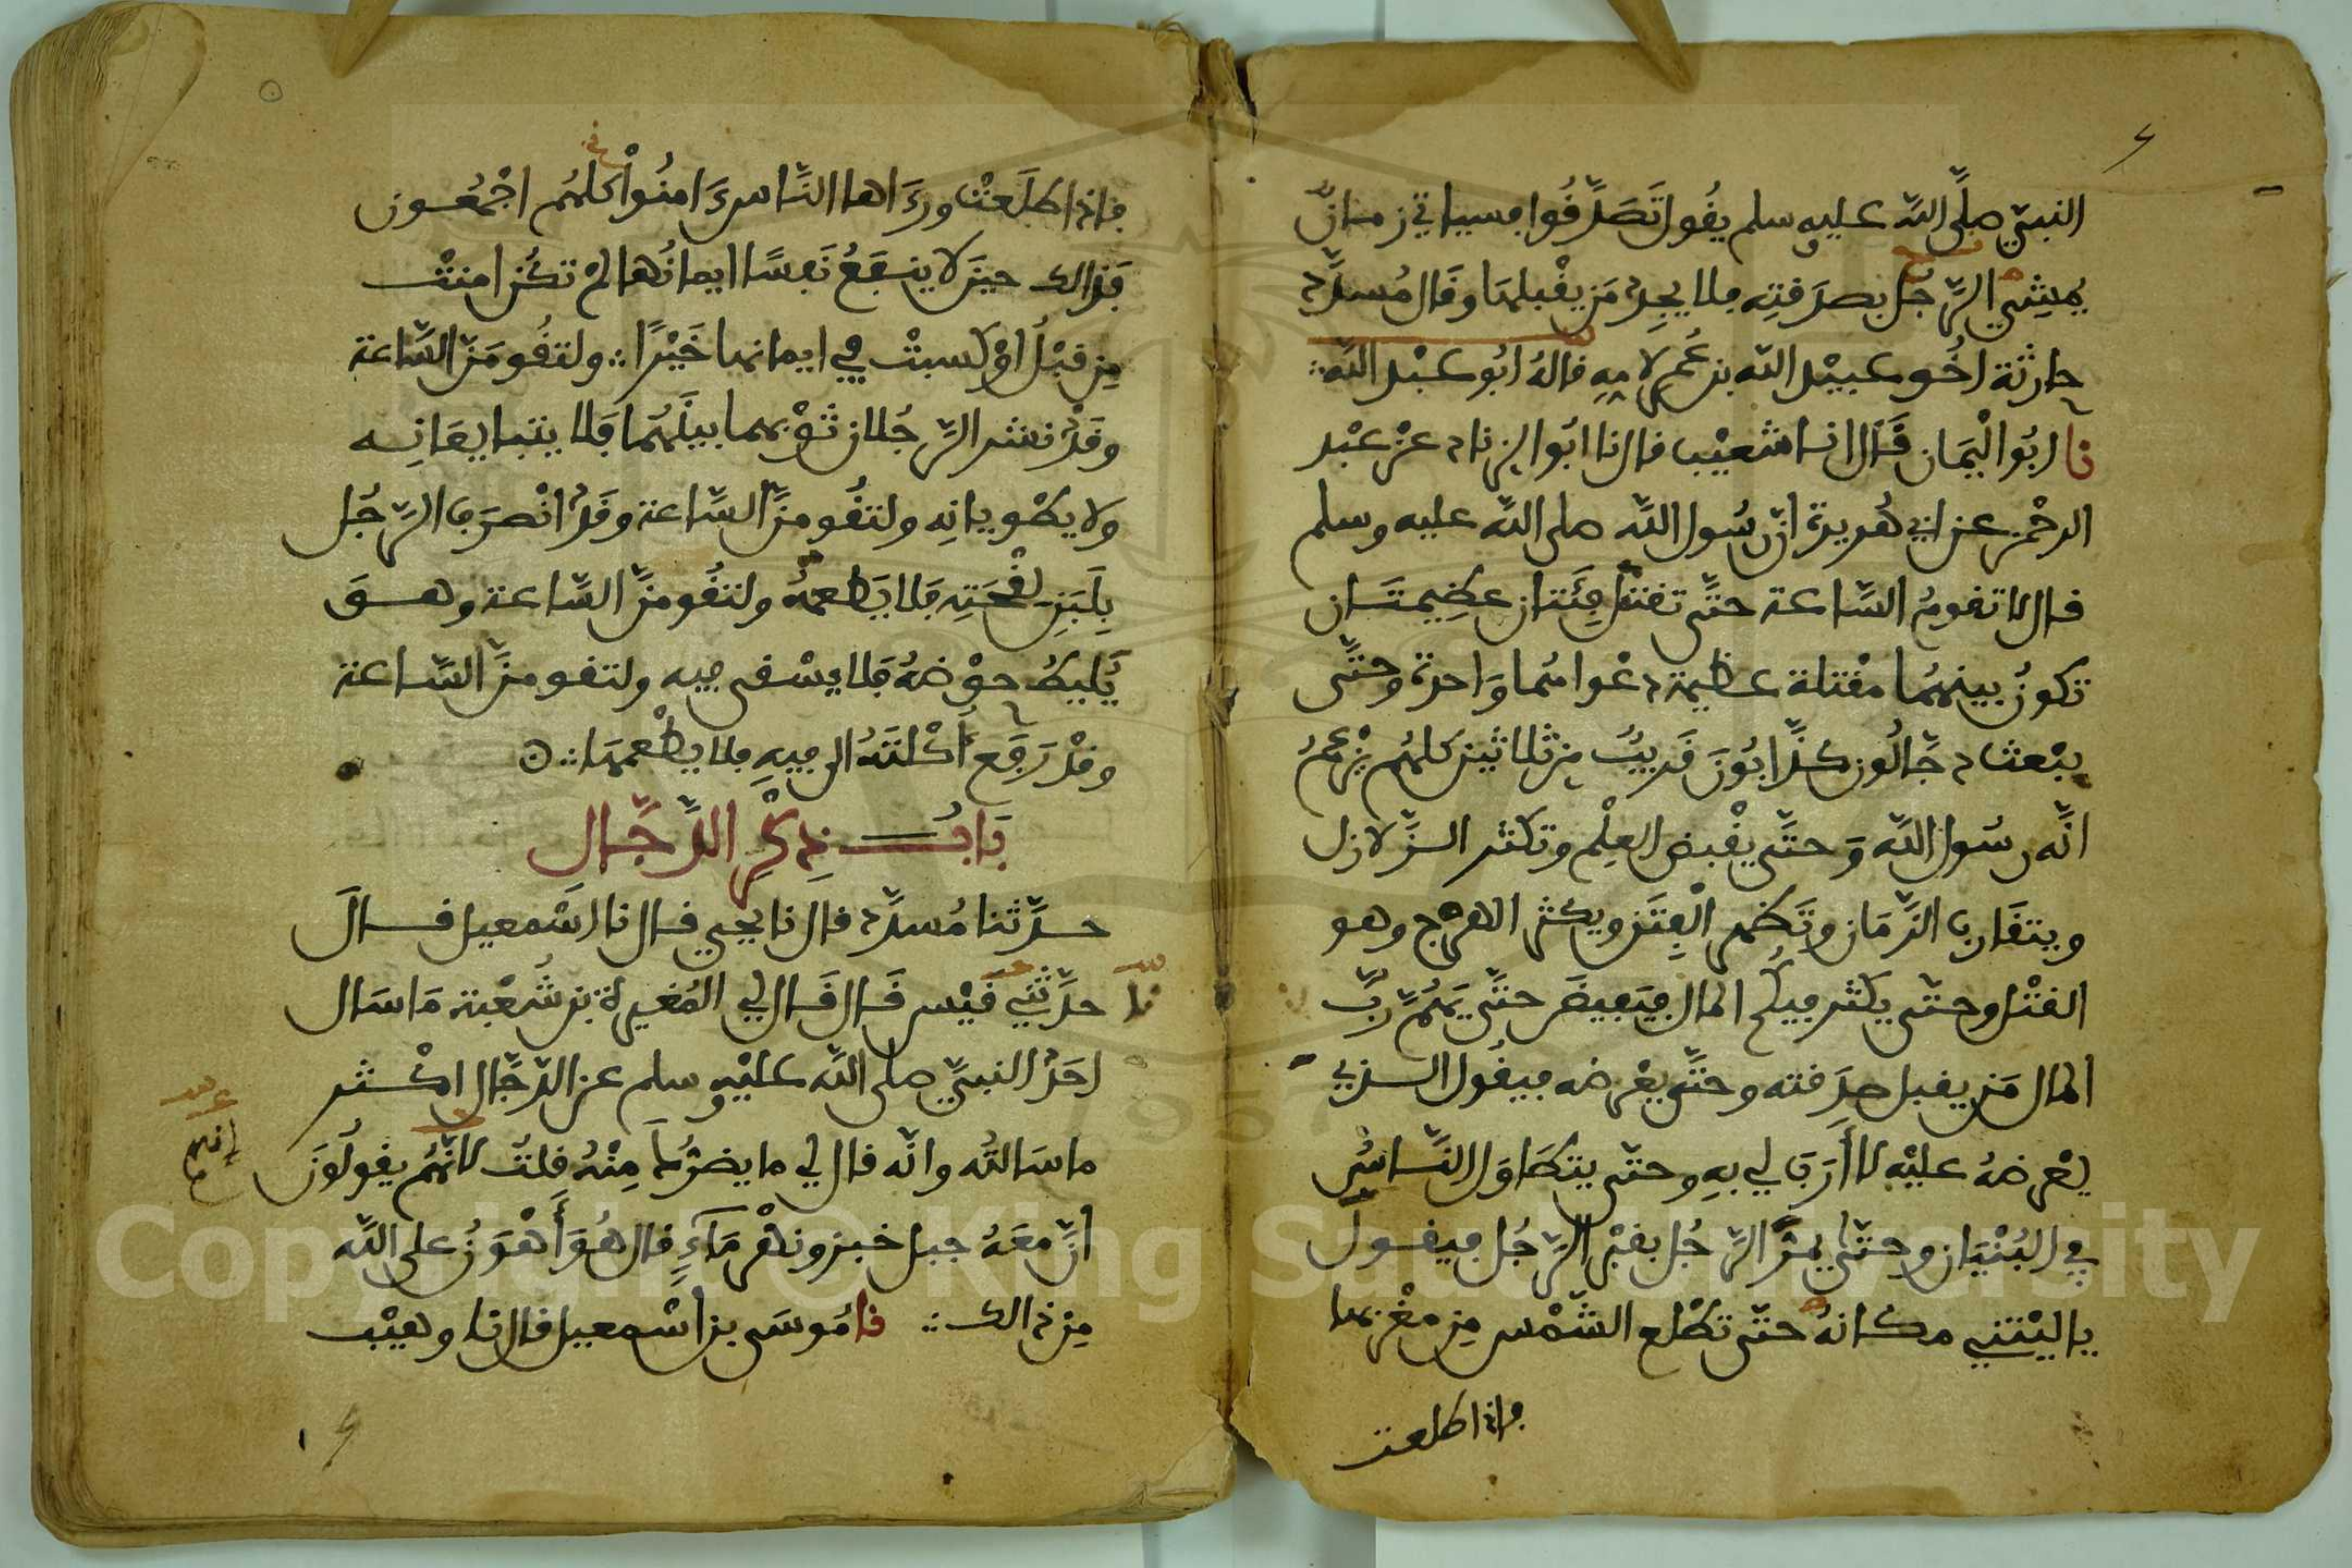 النبيّ صلَّى الله عليه وسلم يقُول تَصَدَّقُوا فسياتي زمانٌ
يمشِي الرَّجُل بصدَقتِه فلا يجِد مَن يقْبلها وقَال مُسدَّد
حارثة اخُو عبيْد الله بن عُمر لامِهِ قالهُ ابُو عبْد الله
نا ابُو الْيَمَان قَال انا شعيْب قال نا ابُو الزناد عنْ عبْد
الرحْمن عن ابي هُريرة انّ رسُول الله صلى الله عليه وسلم
قال لا تقومُ السَّاعة حتَّى تقتتل فِئَتان عظِيمتَان
تكونُ بينهُما مقْتلة عظيمة دعْواهُما وَاحدة وحتَّى
يبْعث دجَّالُون كذَّابُونَ قَريبٌ مِن ثلاثين كلهُم يزْعمُ
انَّه رسُول الله وَحتَّى يقْبض العِلْم وتكثر الزَّلازل
ويتقَارب الزَّمَان وتَظهر الْفِتَن ويكثر الهرْج وهو
القتْل وحتّى يكثر فيكُم المال فيَفِيضَ حتَّى يَهُمَّ ربَّ
المال مَن يقبل صدَقته وحتَّى يعْرضه فيقُول الذي
يعْرضهُ عليْه لا أَرَبَ لي بهِ وحتّى يتطَاوَل النَّاسُ
في البُنْيَان وحتَّى يمُرَّ الرَّجُل بقبْر الرَّجُل فيقول
يا ليْتني مكانهُ حتّى تطْلع الشَّمْس مِن مغْربها
فإذا طلعت
فإذا طلَعتْ ورءَاها النَّاس ءَامنُواْ كلهُم اجْمعُون
فَذالك حينَ لا ينفَعُ نَفسًا ايمانُهَا لمْ تكُن امنتْ
مِن قبْلُ أوْ كسبتْ في ايمانها خَيْرًا ولتقُومَنّ السَّاعة
وقَدْ نشر الرَّجُلان ثوْبهما بينَهُما فَلا يتبايعَانِه
ولا يطْويانِه ولتقُومنَّ السَّاعة وقَدْ انْصرَف الرَّجُل
بِلَبَنِ لِقْحَتِه فَلا يَطعمُهُ ولتقُومنَّ السَّاعة وهو
يُليطُ حوْضهُ فَلا يسْقى فيه ولتقومنَّ السَّاعة
وقدْ رَفَع أُكْلَتَهُ الى فِيهِ فلا يطْعمهَا
بَابُ ذِكْرِ الدَّجَّال
حدَّثنا مُسدَّد قال نا يحيي قال نا اسْمعيل قالَ
حدَّثني قَيْس قَال قَال لي المُغيرة بن شُعْبة مَا سَال
نا
احَدٌ النبيَّ صلى الله عليْهِ وسلم عن الدّجَّال اكْثر
ما سَالتُه وانَّه قال لي ما يضرُّكَ مِنْهُ قلتُ لانَّهُم يقولُونَ
إنهم
انَّ معَهُ جبل خبز ونهْر مَاءٍ قال هُوَ أَهْوَنُ على الله
مِن ذالك نا مُوسَى بن اسْمعيل قال نا وهيْب